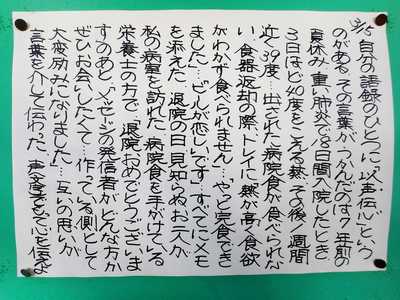 12/5 自分の語録のひとつに「以声伝心」という
のがある その言葉がうかんだのは7年前の
夏休み 重い肺炎で18日間入院したとき
3日ほど40度をこえる熱 その後1週間
近く39度… 出された病院食が食べられな
い 食器返却の際、トレイに「熱が高く食欲
がわかず食べられません…やっと完食でき
ました…ビールが恋しいです…」すべてにメモ
を添えた 退院の日、見知らぬお二人が
私の病室を訪れた 病院食を手がけている
栄養士の方で「退院おめでとうございま
すのあと、メッセージの発信者がどんな方か
ぜひお会いしたくて…作っている側として
大変励みになりました」…互いの思いが
言葉を介して伝わった 声(文字)でも心を伝よ